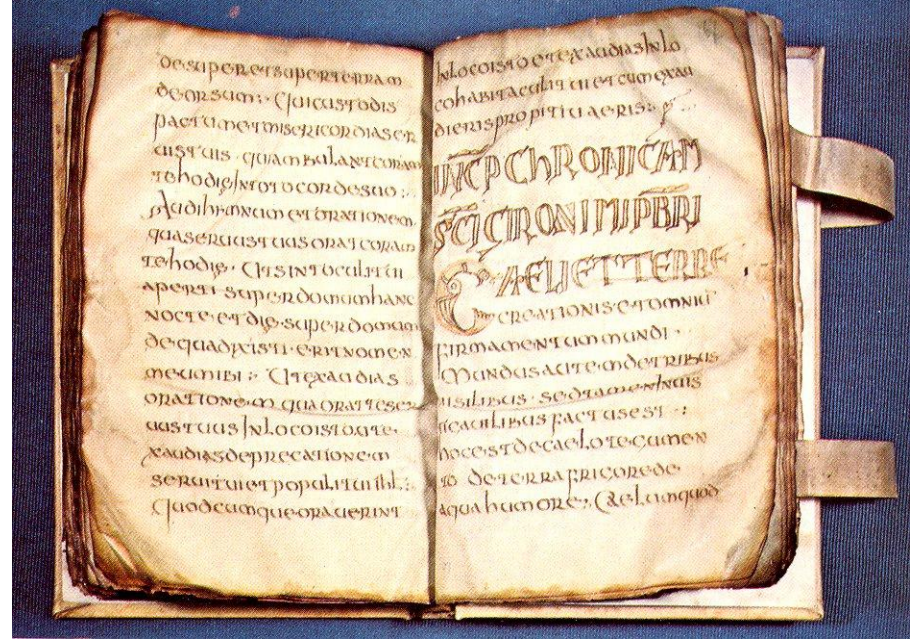 desuperetsuperterram
deorsum:· Quicustodis
pactumetmisericordiaser
uistuis · quiambulantcoram
tehodieIntotocordesuo :·
Audihymnumetorationem
quaseruustuusoratcoram
tehodie · Utsintoculitui
aperti superdomumhanc
nocte · etdie · superdomum
dequadixisti · eritnomen
meumibi :· Utexaudias
orationem quaorattéser
uustuus Inlocoistoute
xaudiasdeprecationem
seruituietpopulituihl :·
Quodcumqueorauerint
InlocoistoetexaudiasInlo
cohabitaculituietcumexau
dierispropitiuaeris :·
INCP CHRONICAM
SCI GIRONIMI PBRI
CAELI ET TERRE
creationisetomniu
firmamentummundi ·
Mundusautemdetribus
uisilibus · sedtamen
factusest :·
hocestdecaelo
deterrafrigorede
aquahumore :· Caelumquod